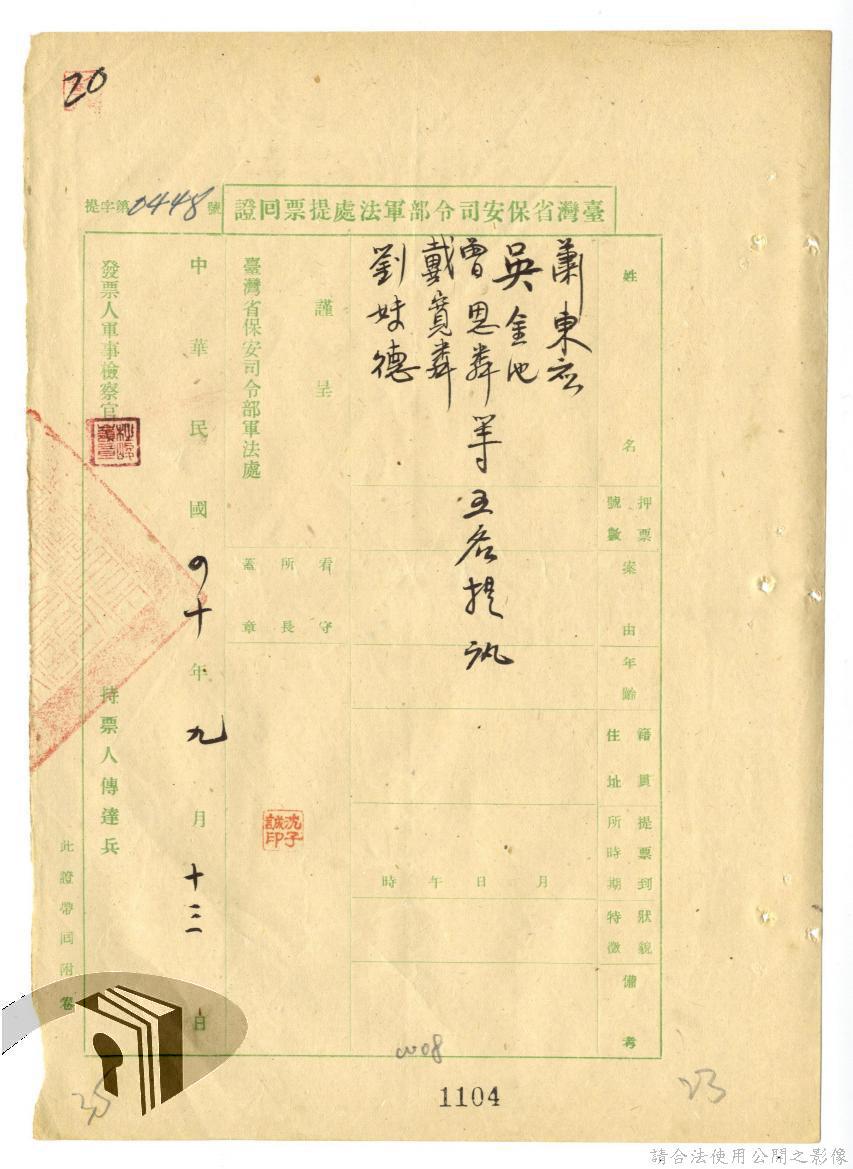 20
臺灣省保安司令部軍法處提票回證
提字第0448號
姓名
押票號數
案由
年齡
籍貫住址
提票到所時期
狀貌特徵
備考
蕭東
吳金池
曾思粦
戴寬粦
劉妹德
等五名提訊
月日午時
謹呈
臺灣省保安司令部軍法處
看守所長蓋章
沈子誠印
中華民國四十年九月十三日
發票人軍事檢察官
持票人傳達兵
此證帶回附卷
0008
1104
23
35
請合法使用公開之影像